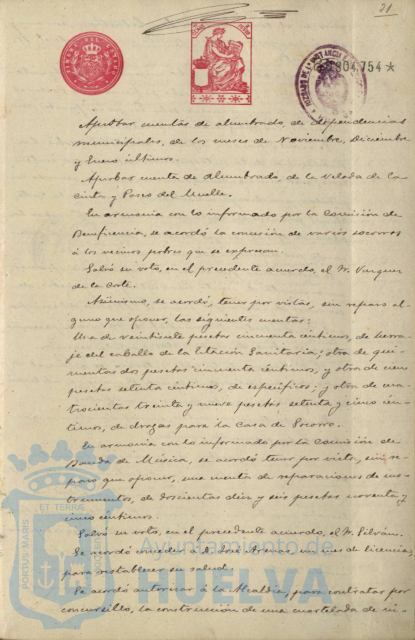 21
804.754 *
Aprobar cuentas de alumbrado, de dependencias
municipales, de los meses de Noviembre, Diciembre
y Enero últimos.
Aprobar cuenta de Alumbrado, de la Velada de la
Cinta y Paseo del Muelle.
En armonía con lo informado por la Comisión de
Beneficencia, se acordó la concesión de varios socorros
á los vecinos pobres que se expresan.
Salvó su voto, en el precedente acuerdo, el Sr. Vazquez
de la Corte.
Asimismo, se acordó, tener por vistas, sin reparo al-
guno que oponer, las siguientes cuentas:
Una de veintisiete pesetas cincuenta céntimos, de herra-
je del caballo de la Estación Sanitaria; otra de qui-
nientas dos pesetas cincuenta céntimos, y otra de cien
pesetas setenta céntimos, de específicos; y otra de cua-
trocientas treinta y nueve pesetas setenta y cinco cén-
timos, de drogas para la Casa de Socorro.
En armonía con lo informado por la Comisión de
Banda de Música, se acordó tener por vista, sin re-
paro que oponer, una cuenta de reparaciones de ins-
trumentos, de doscientas diez y seis pesetas noventa y
cinco céntimos.
Salvó su voto, en el precedente acuerdo, el Sr. Silván.
Se acordó conceder á D. José Arenas un mes de licencia,
para restablecer su salud.
Se acordó autorizar á la Alcaldía, para contratar por
concursillo, la construcción de una cuartelada de ni-
PORTUS MARIS
ET TERRAE
Ayuntamiento de
HUELVA